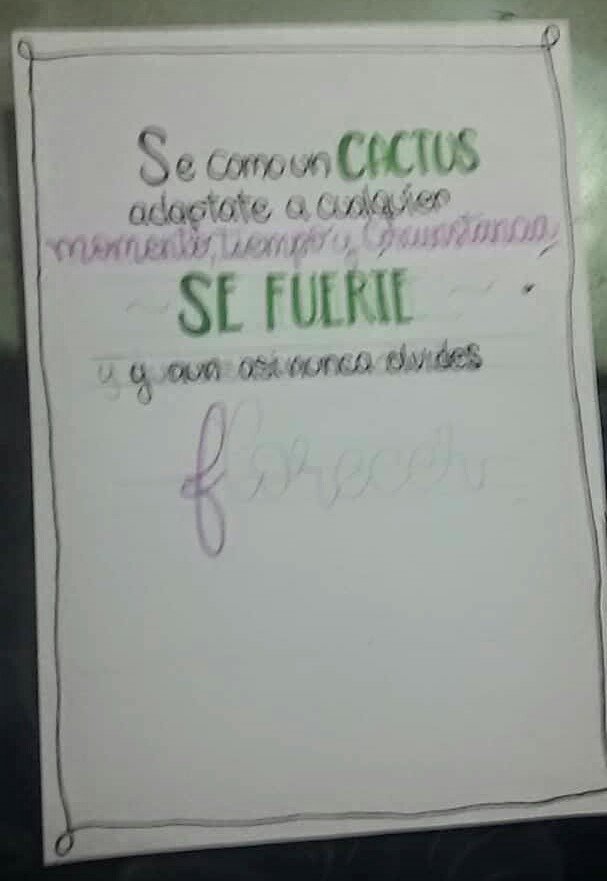 Se como un CACTUS
adaptate a cualquier
momento, tiempo y Circunstancia,
SE FUERTE
y y aun asi nunca olvides
florecer